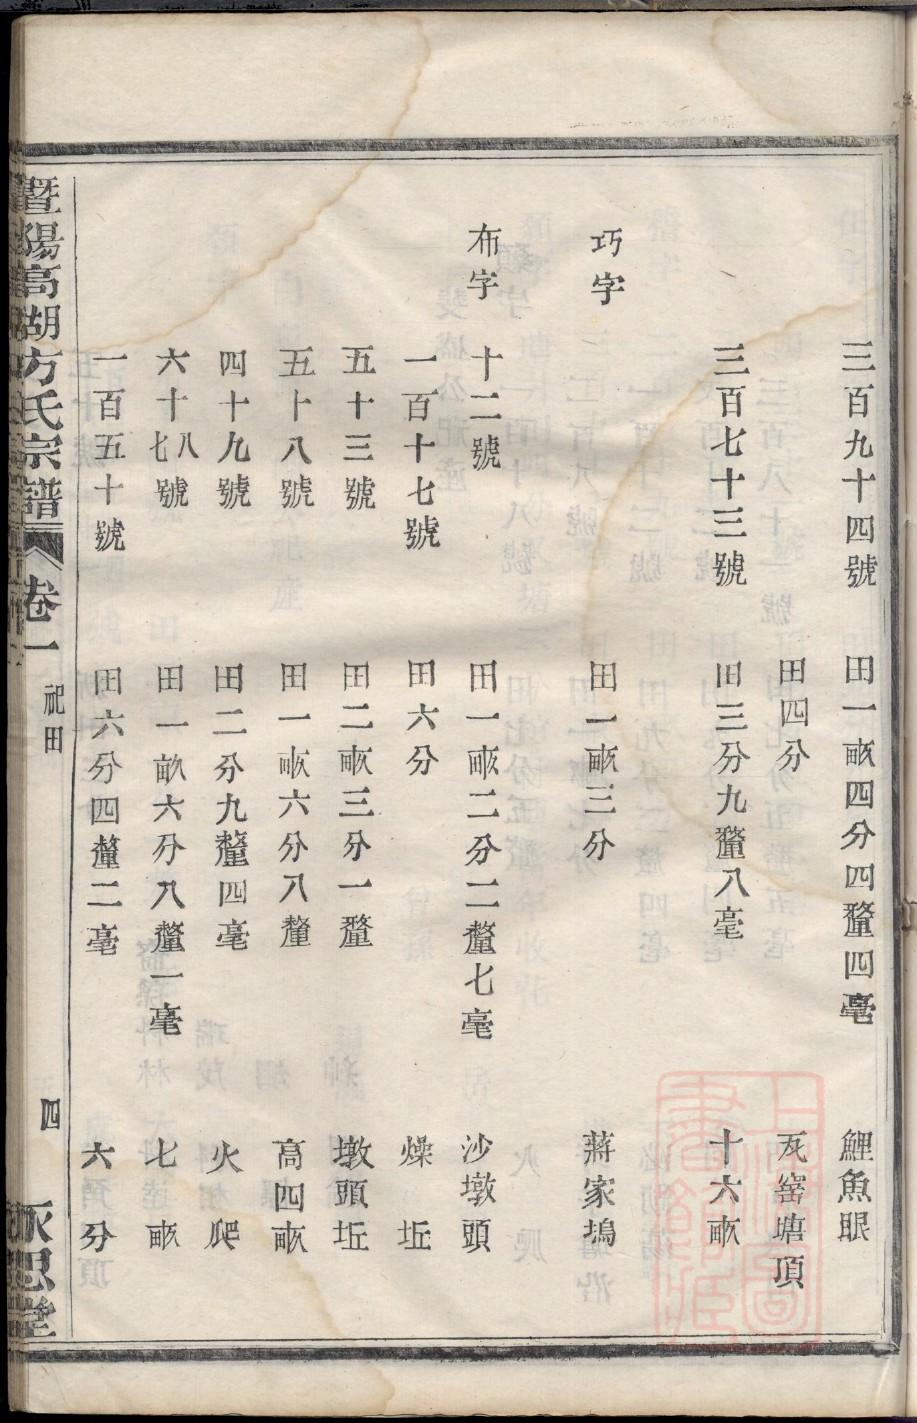 三百九十四號 田一畝四分四釐四毫 鯉魚眼
田四分 瓦窰塘頂
三百七十三號 田三分九釐八毫 十六畝
巧字 田一畝三分 蔣家塢
布字 十二號 田一畝二分二釐七毫 沙墩頭
一百十七號 田六分 燥坵
五十三號 田二畝三分一釐 墩頭坵
五十八號 田一畝六分八釐 高四畝
四十九號 田二分九釐四毫 火爬
六十七八號 田一畝六分八釐一毫 七畝
一百五十號 田六分四釐二毫 六分
暨陽高湖方氏宗譜 卷一 祀田 四 永思堂